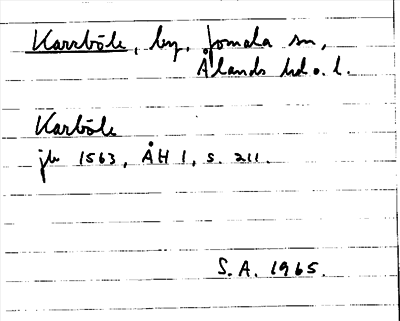 Karrböle, by, Jomala sn,
Ålands hd o. l.
Karböle
jb 1563, ÅH 1, s. 211.
S.A. 1965.